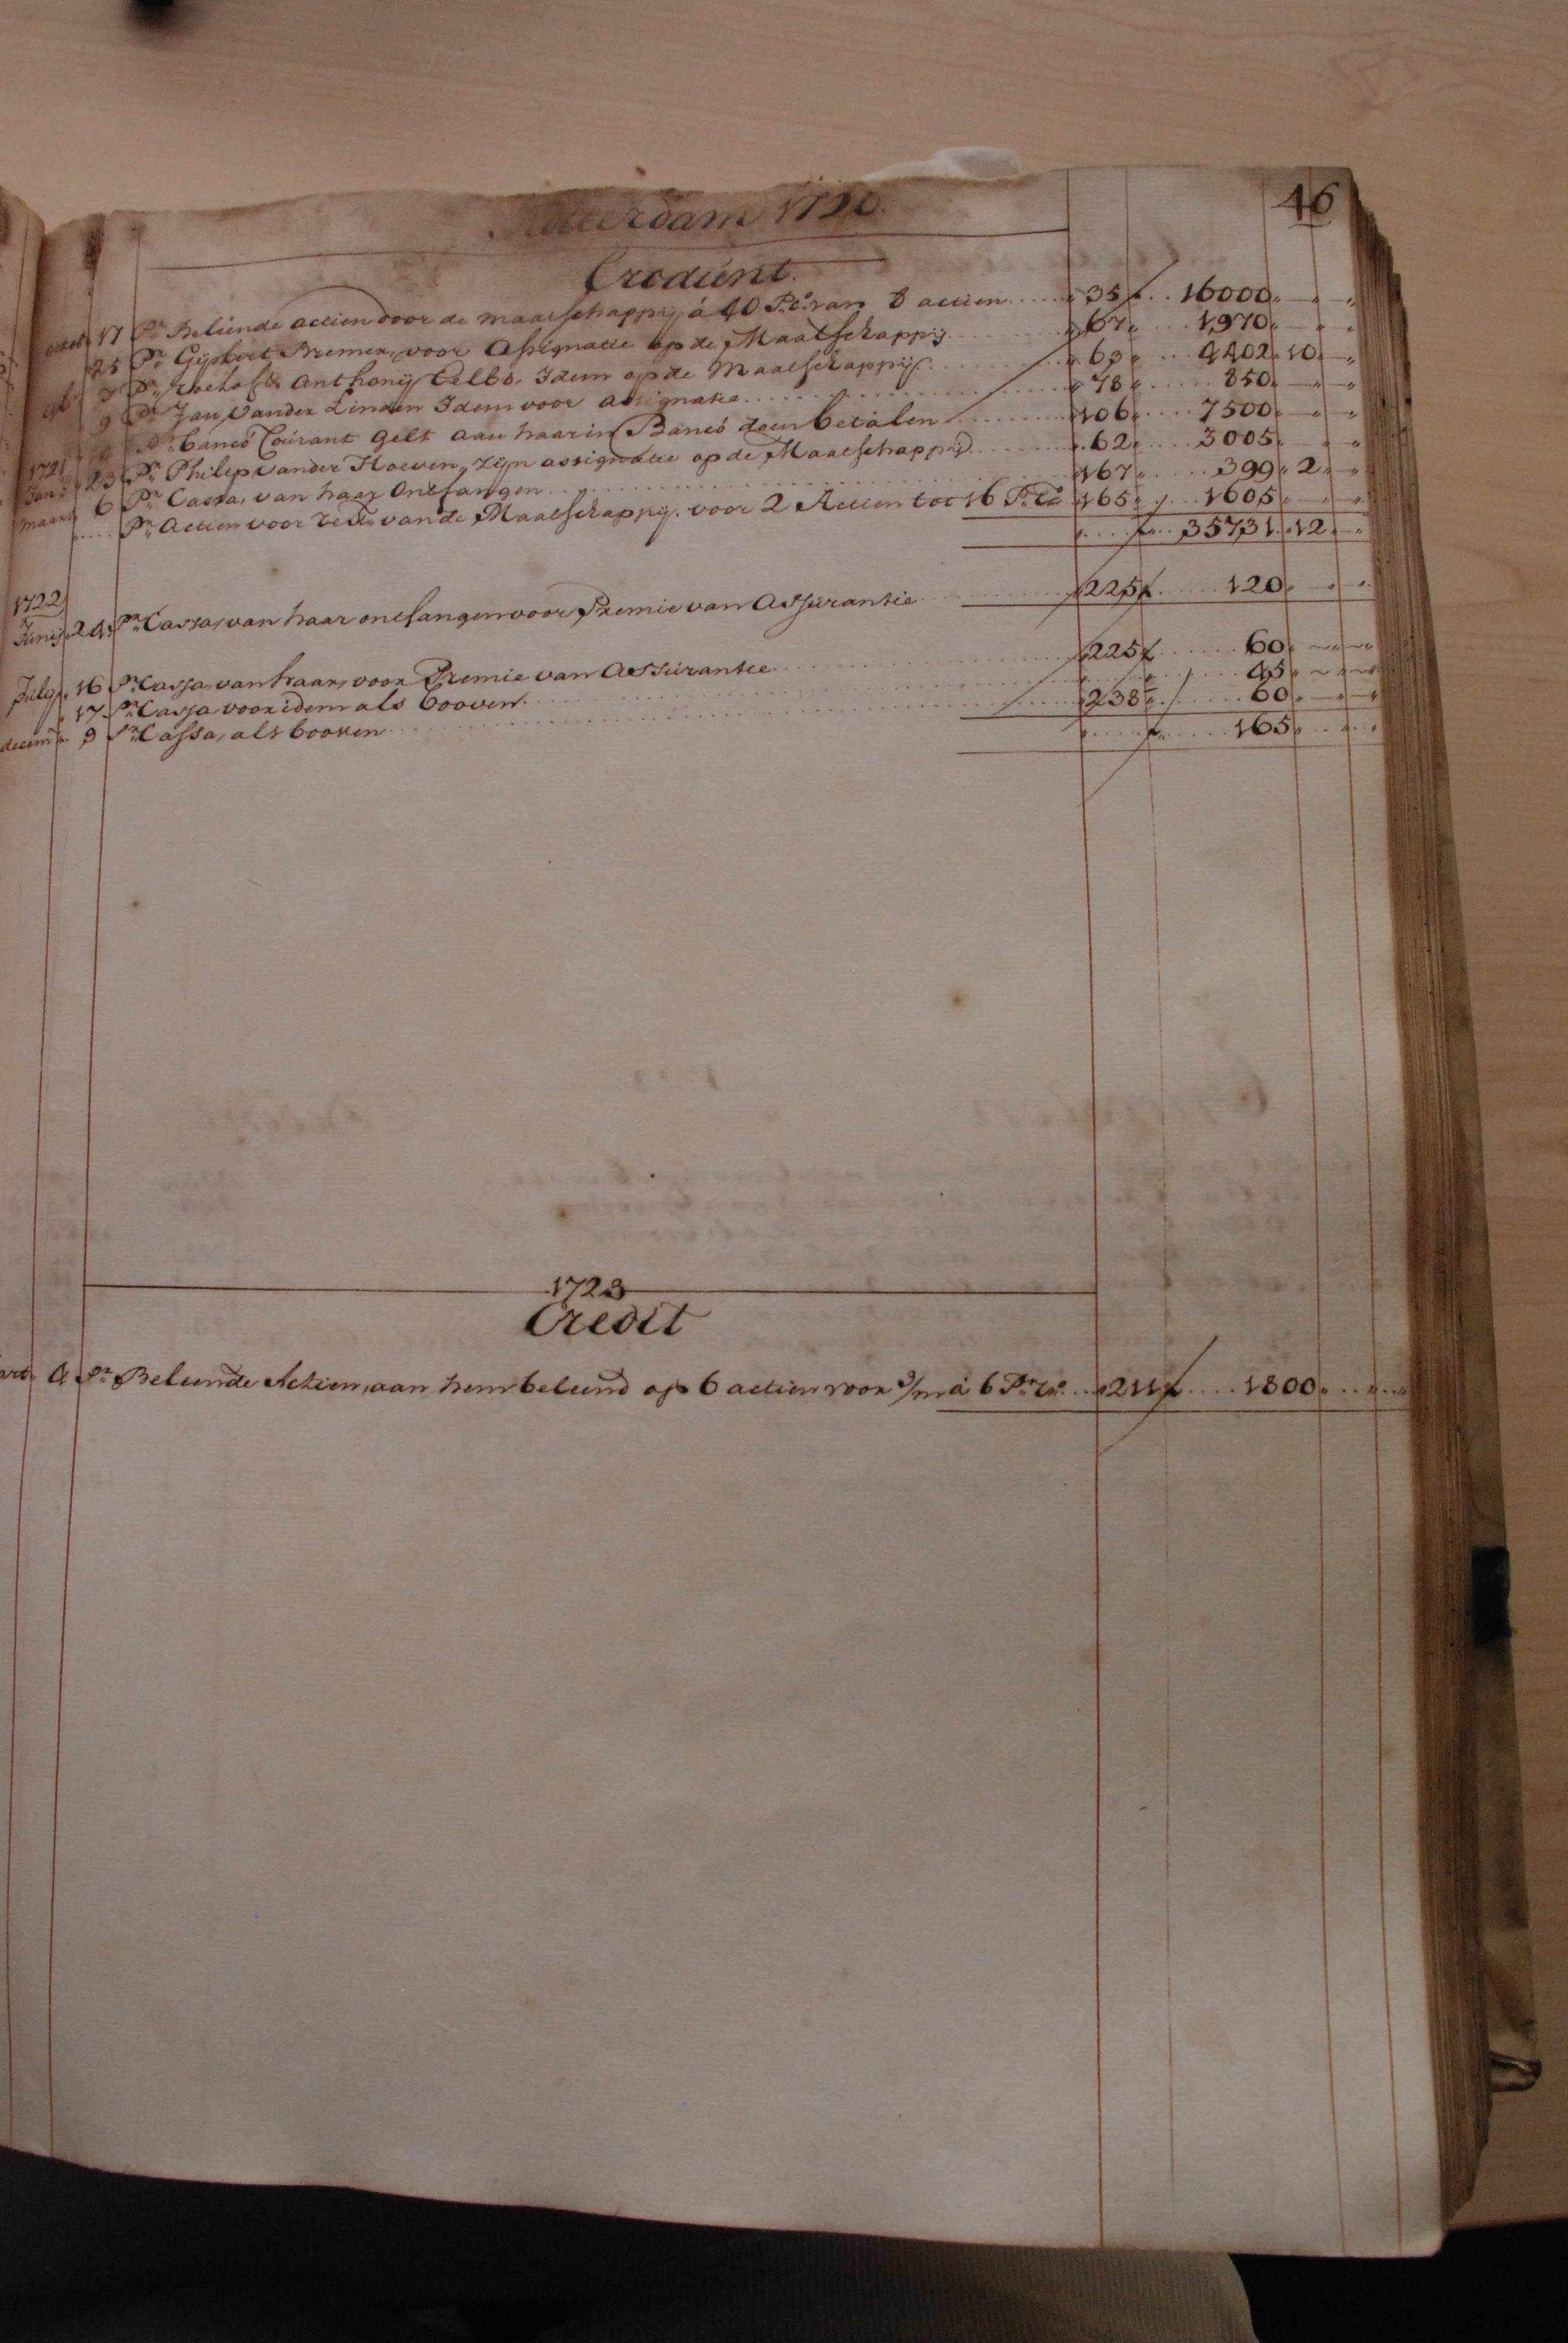 46
Rotterdam 1720.
Credunt.
octob 17 Pr. Beleende actien door de maatschappij á 40 P.Co. van 8 actien 35 f 16000
25 Pr. Gijsbert Bremer, voor Assignatie op de Maatschappij 67 1970
7 Pr. Roelof & Anthonij Celbo, Idem op de Maatschappij 63 4402 10
9 Pr. Jan vander Linden Idem voor assignatie 78 850
Pr. banco Courant gelt aan haar in Banco doen betalen 106 7500
1721
Jan 23 Pr. Philip vander Hoeven, zijn assignatie op de Maatschappij 62 3005
maart 6 Pr. Cassa, van haar Ontfangen 167 399 2
Pr. Actien voor Re. van de Maatschappij. voor 2 Actien tot 16 Pr. Co. 165 1605
f 35731 12
1722
Junij 24 Pr. Cassa, van haar ontfangen voor Premie van Assurantie 225 f 120
July 16 Pr. Cassa, van haar, voor Premie van Assurantie 225 f 60
17 Pr. Cassa, voor idem als booven 45
decem 9 Pr. Cassa, als booven 238 60
f 165
1723
Credit
4 Pr. Beleende Actien, aan hem beleend op 6 actien voor 3/m á 6 Pr. Co. 211 f 1800